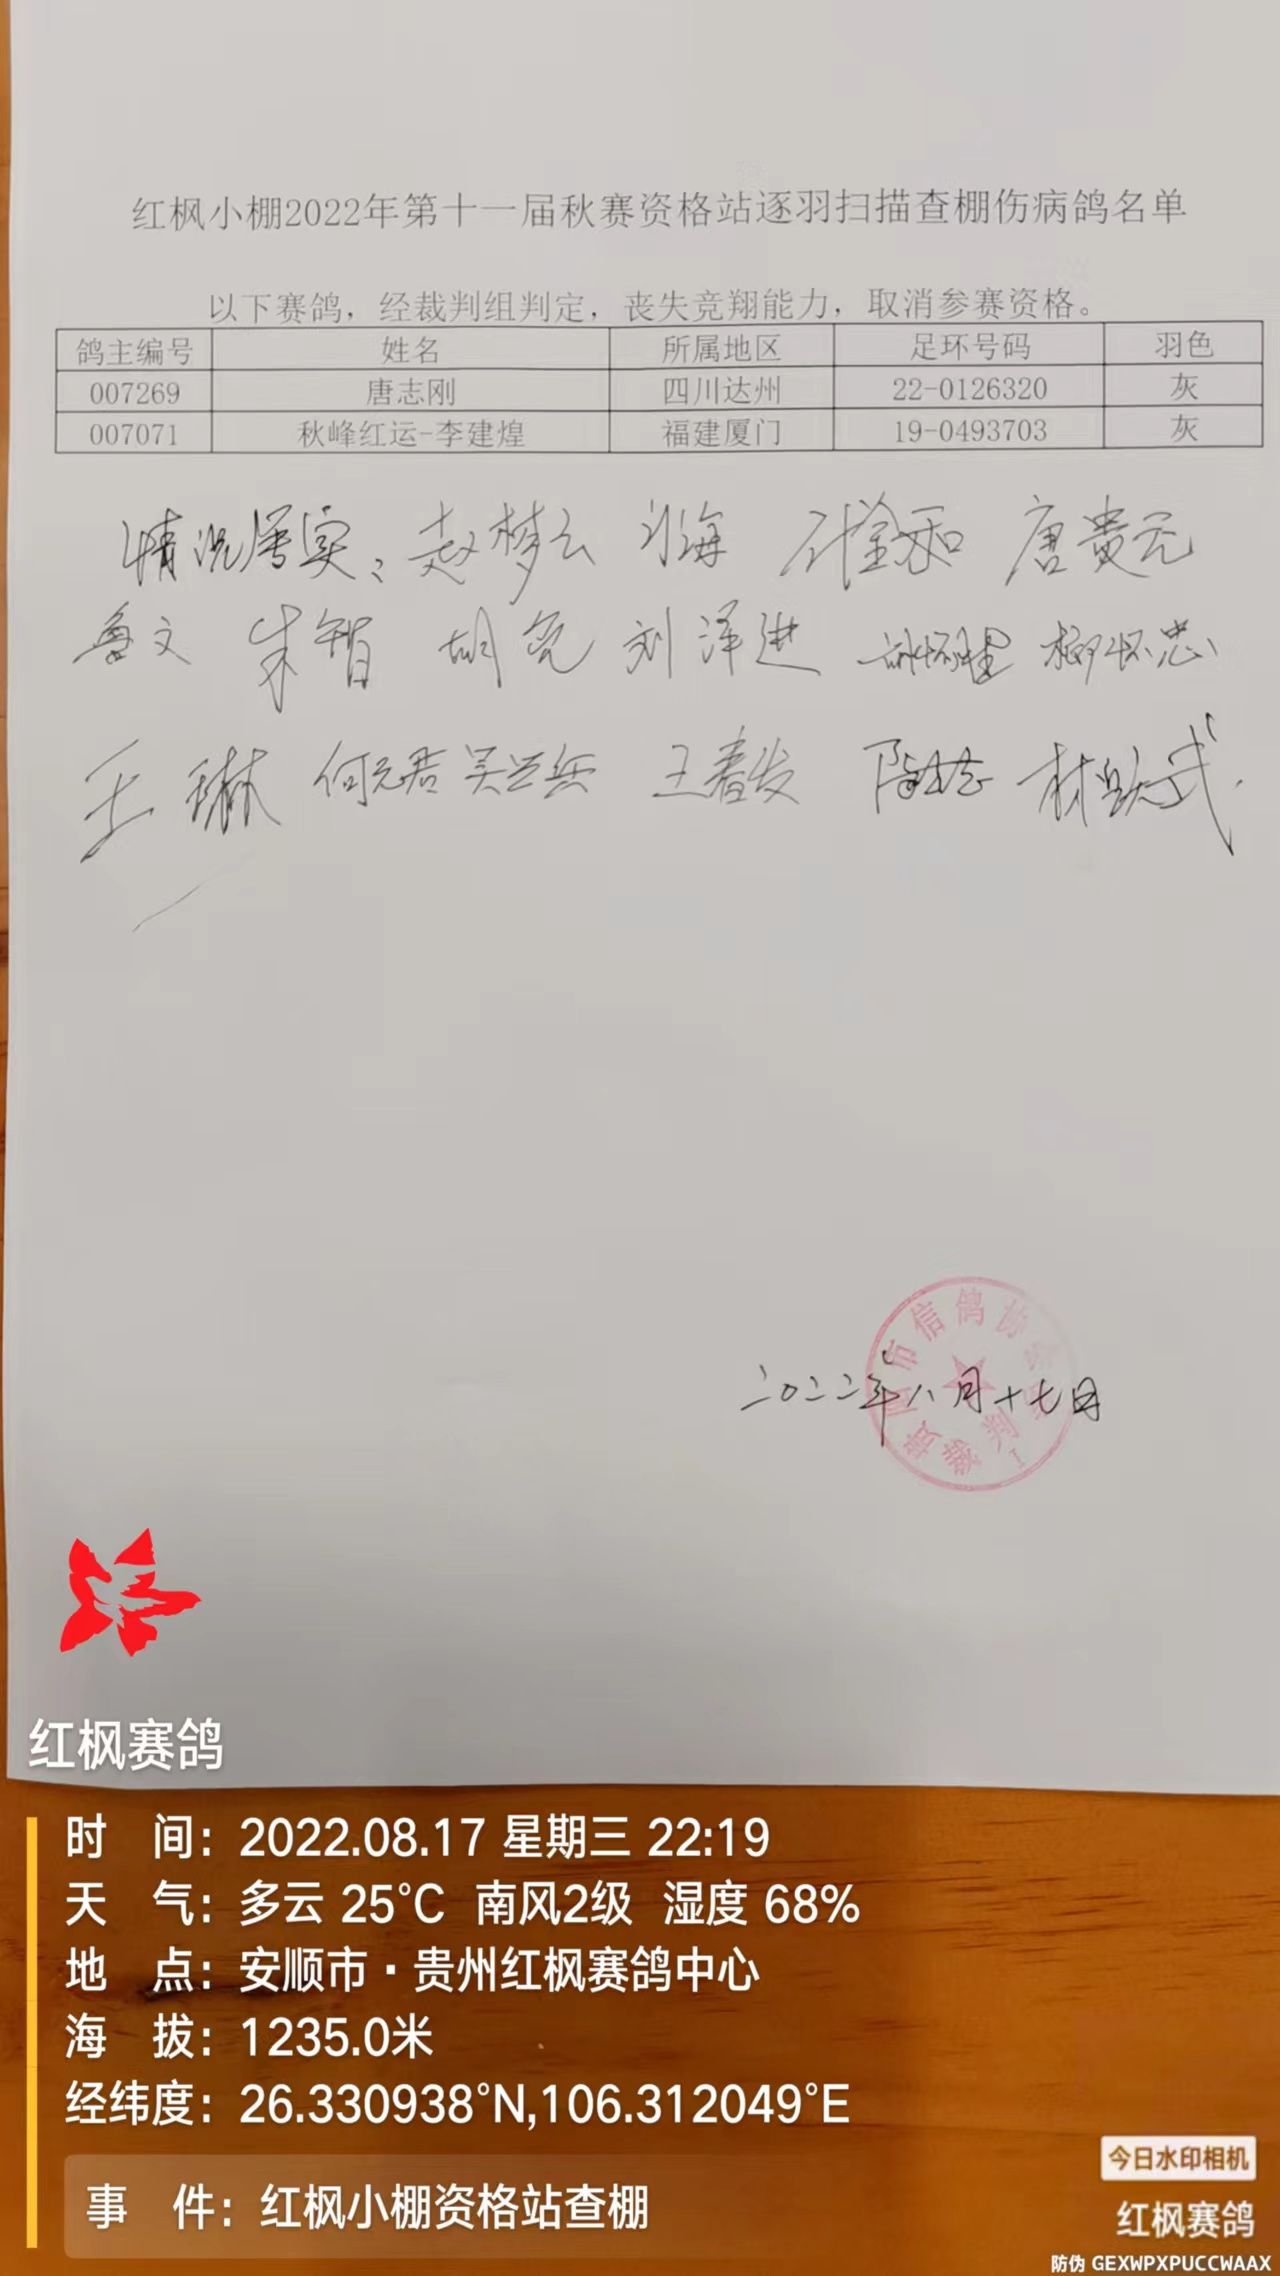 红枫小棚2022年第十一届秋赛资格站逐羽扫描查棚伤病鸽名单
以下赛鸽，经裁判组判定，丧失竞翔能力，取消参赛资格。
鸽主编号 姓名 所属地区 足环号码 羽色
007269 唐志刚 四川达州 22-0126320 灰
007071 秋峰红运-李建煌 福建厦门 19-0493703 灰
情况属实、赵梦云 唐贵元
鲁文 朱智 胡亮 刘泽进 柳怀忠
王琳 何元君 吴兰兵 王春发
市信鸽协
裁判
二〇二二年八月十七日
红枫赛鸽
时 间：2022.08.17 星期三 22:19
天 气：多云 25℃ 南风2级 湿度 68%
地 点：安顺市·贵州红枫赛鸽中心
海 拔：1235.0米
经纬度：26.330938°N,106.312049°E
事 件：红枫小棚资格站查棚
今日水印相机
红枫赛鸽
防伪 GEXWPXPUCCWAAX